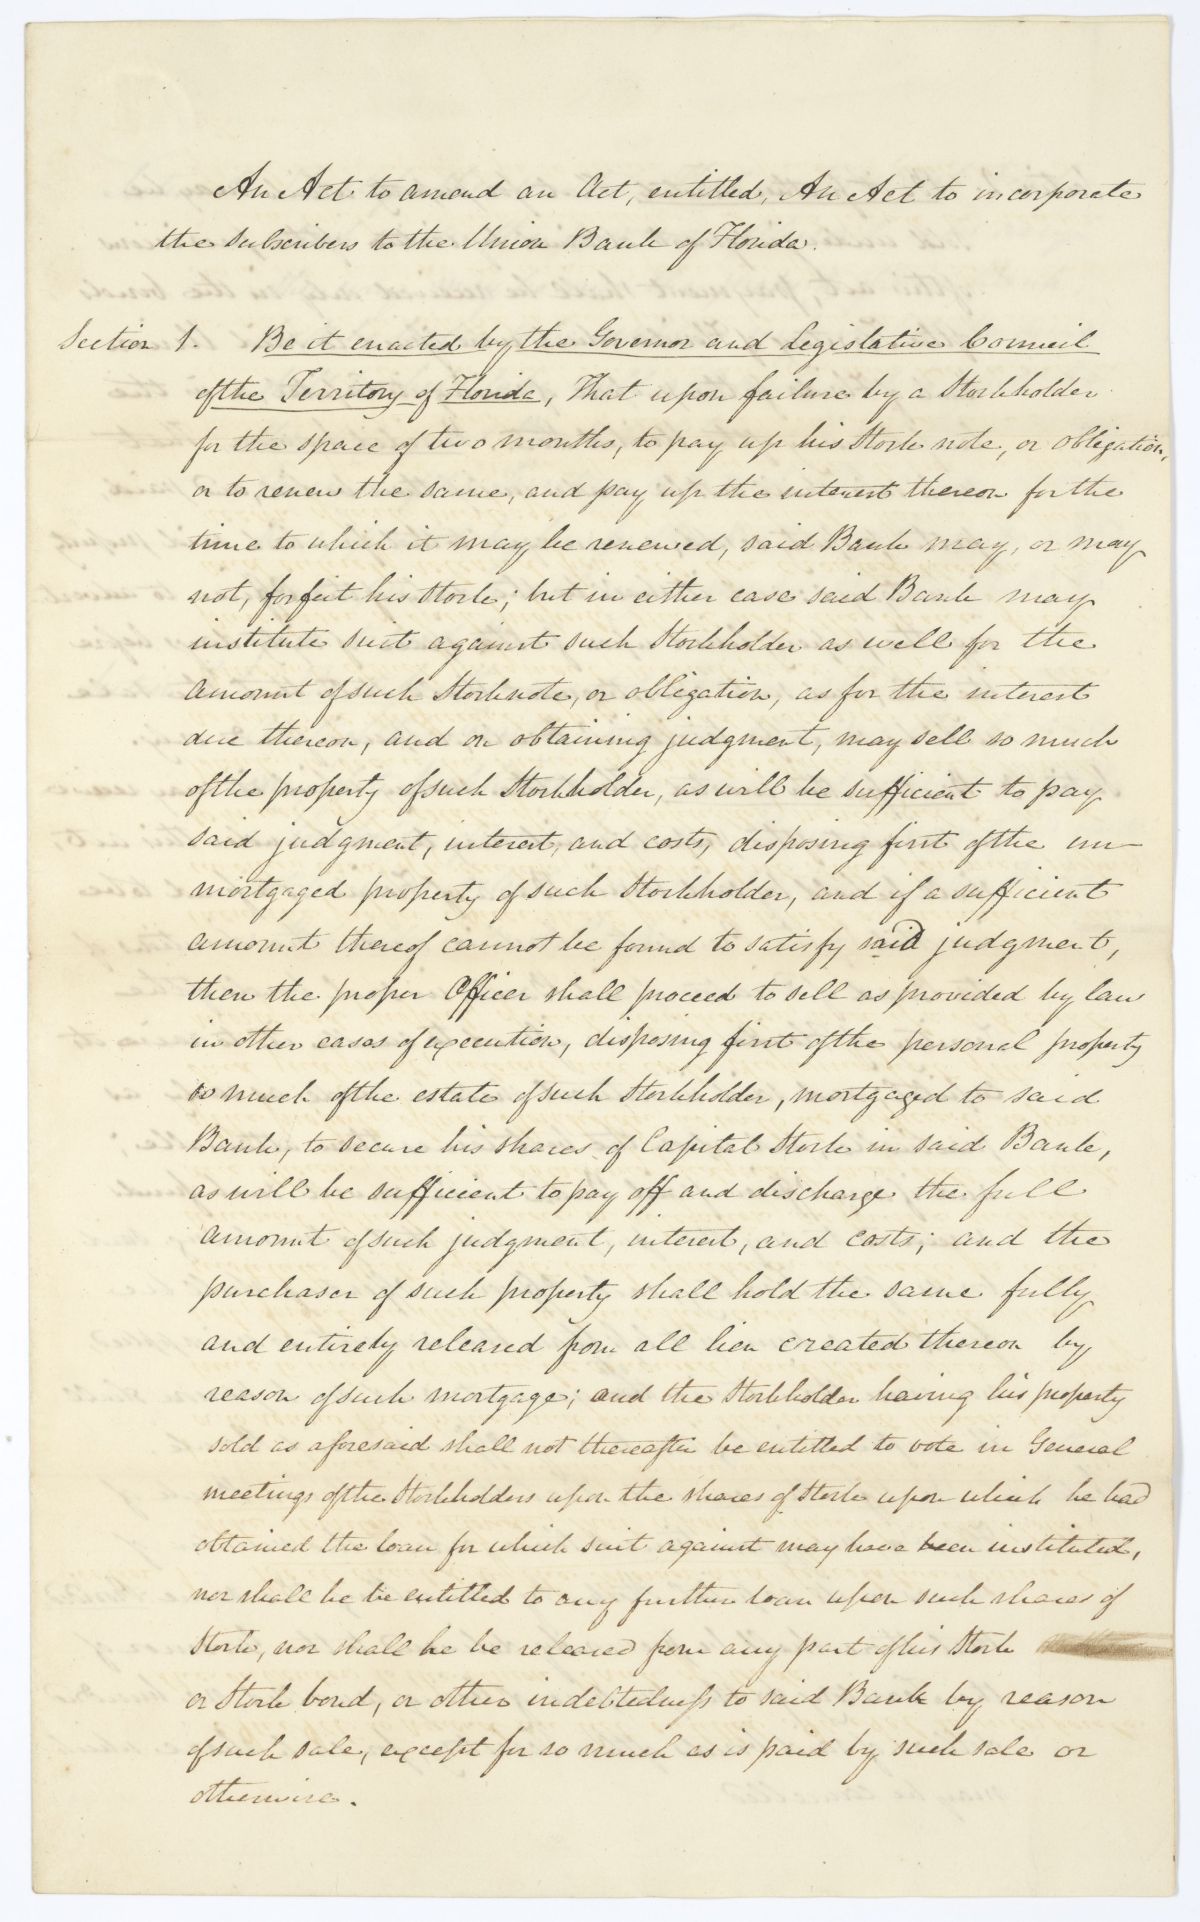 An Act to amend an Act, entitled, An Act to incorporate
the Subscribers to the Union Bank of Florida.
Section 1. Be it enacted by the Governor and Legislative Council
of the Territory of Florida, That upon failure by a Stockholder
for the space of two months, to pay up his Stock note, or obligation,
or to renew the same, and pay up the interest thereon for the
time to which it may be renewed, said Bank may, or may
not, forfeit his Stock; but in either case said Bank may
institute suit against such Stockholder as well for the
amount of such Stocknote, or obligation, as for the interest
due thereon, and on obtaining judgment, may sell so much
of the property of such Stockholder, as will be sufficient to pay
said judgment, interest, and costs, disposing first of the un-
mortgaged property of such Stockholder, and if a sufficient
amount thereof cannot be found to satisfy said judgment,
then the proper Officer shall proceed to sell as provided by law
in other cases of execution, disposing first of the personal property
so much of the estate of such Stockholder, mortgaged to said
Bank, to secure his shares of Capital Stock in said Bank,
as will be sufficient to pay off and discharge the full
amount of such judgment, interest, and costs; and the
purchaser of such property shall hold the same fully
and entirely released from all lien created thereon by
reason of such mortgage; and the Stockholder having his property
sold as aforesaid shall not thereafter be entitled to vote in General
meetings of the Stockholders upon the shares of Stock upon which he had
obtained the loan for which suit against may have been instituted,
nor shall he be entitled to any further loan upon such shares of
Stock, nor shall he be released from any part of his Stock
or Stock bond, or other indebtedness to said Bank by reason
of such sale, except for so much as is paid by such sale or
otherwise.